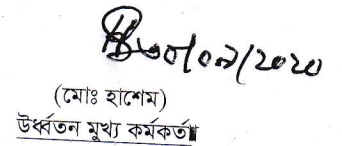 ৩০/০৯/২০২০
(মোঃ হাশেম)
উর্ধ্বতন মুখ্য কর্মকর্তা